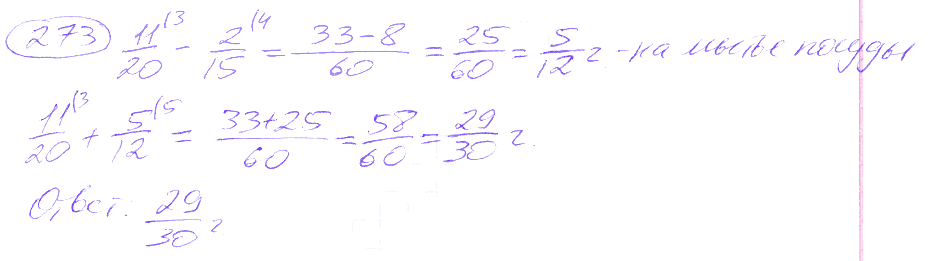 273 11/20 \3 - 2/15 \4 = 33-8/60 = 25/60 = 5/12 ч - на мытье посуды
11/20 \3 + 5/12 \5 = 33+25/60 = 58/60 = 29/30 ч.
Ответ: 29/30 ч